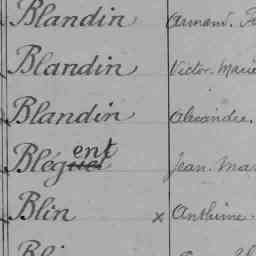 Blandin Armand.
Blandin Victor. Marie
Blandin Alexandre.
Bléguent Jean. Mar
Blin x Anthime.